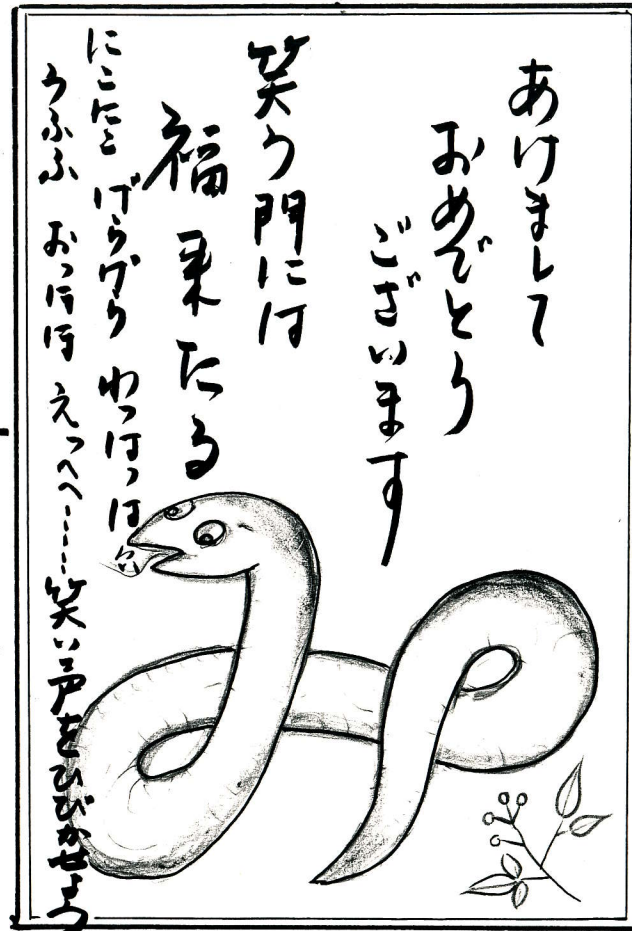 あけまして
おめでとう
ございます
笑う門には
福来たる
にこにこ げらげら わっはっは
うふふ おっほほ えっへへ……笑い声をひびかせよう